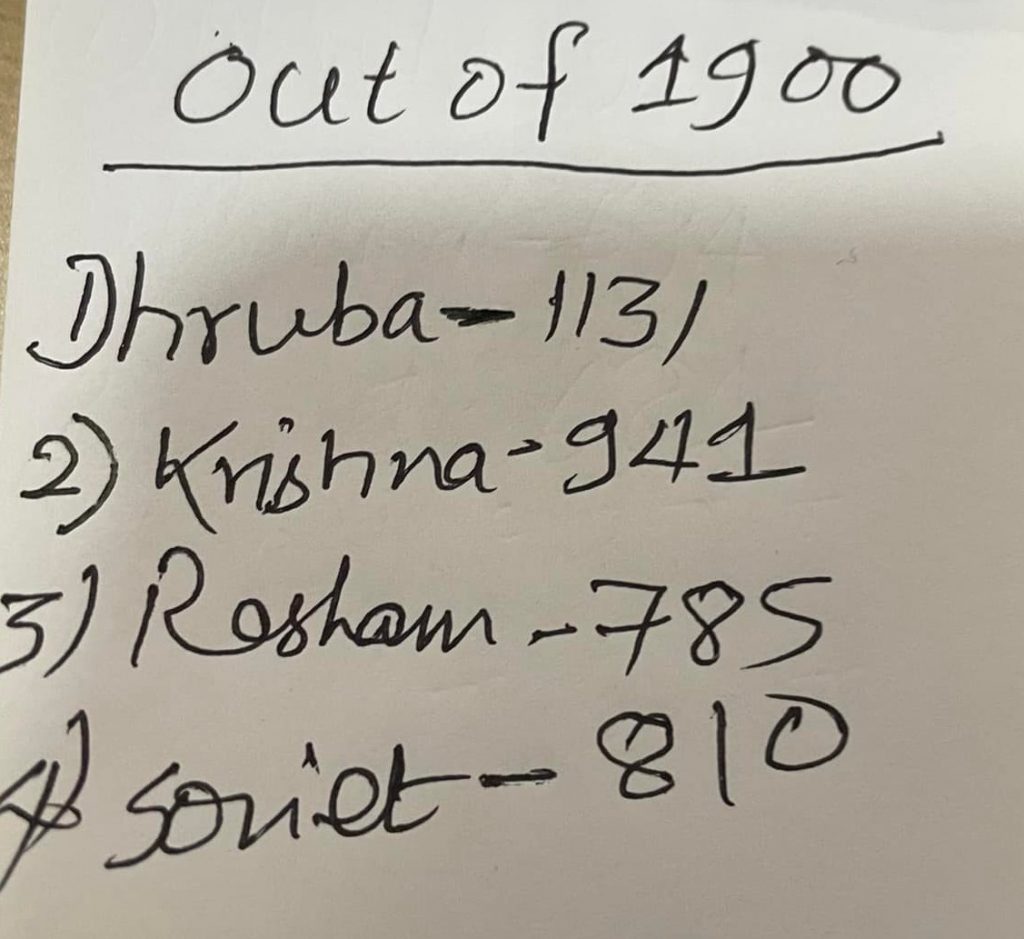 Out of 1900
Dhruba - 1131
2) Krishna - 941
3) Rosham - 785
4) Soviet - 810